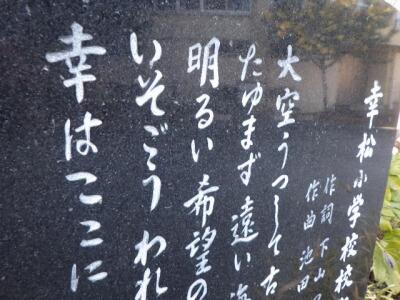 幸松小学校校
作詞 下山
作曲 池田
大空うつして古
たゆまず遠い海
明るい希望の
いそごうわれ
幸はここに